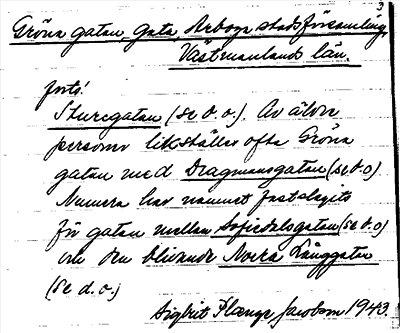 3
Gröna gatan, Gata, Arboga stadsförsamling,
Västmanlands län.
forts.
Sturegatan (se d. o.). Av äldre
personer likställes ofta Gröna
gatan med Dragmansgatan (se d. o)
Numera har namnet fastslagits
för gatan mellan Sofiedalsgatan (se d. o)
och den blivande Norra Långgatan
(se d. o.)
Sigbrit Plænge Jacobson 1943.